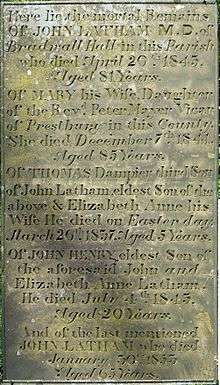 Here lie the mortal Remains
Of JOHN LATHAM M.D. of
Bradwall Hall in this Parish
who died April 20th 1843.
Aged 81 Years.
Of MARY his Wife Daughter
of the Revd Peter Mayer Vicar
of Prestbury in this County
She died December 7th
Aged 85 Years.
Of THOMAS Dampier third Son
of John Latham, eldest Son of the
above & Elizabeth Anne his
Wife He died on Easter day
March 26th 1837. Aged 5 Years.
Of JOHN HENRY, eldest Son of
the aforesaid John and
Elizabeth Anne Latham.
He died July 4th 1843.
Aged 20 Years.
And of the last mentioned
JOHN LATHAM who died
January 30th 1853
Aged 65 Years.